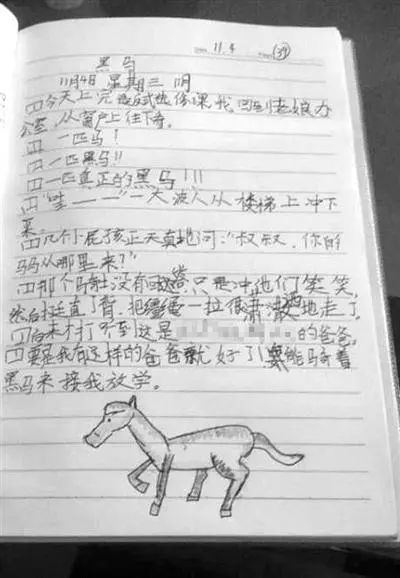 11.4
黑马
11月4日 星期三 阴
今天上完 课我回到老娘办
公室,从窗户上往下看。
一匹马!
一匹黑马!!
一匹真正的黑马!!!
"哇——"一大波人从楼梯上冲下
来。
几个小屁孩正天真地问:"叔叔,你的
马从哪里来?"
那个骑士没有回答,只是冲他们笑笑,
然后挺直了背,把缰绳一拉很潇洒地走了。
后来才打听到这是 的爸爸。
要是我有这样的爸爸就好了!能骑着
黑马来接我放学。